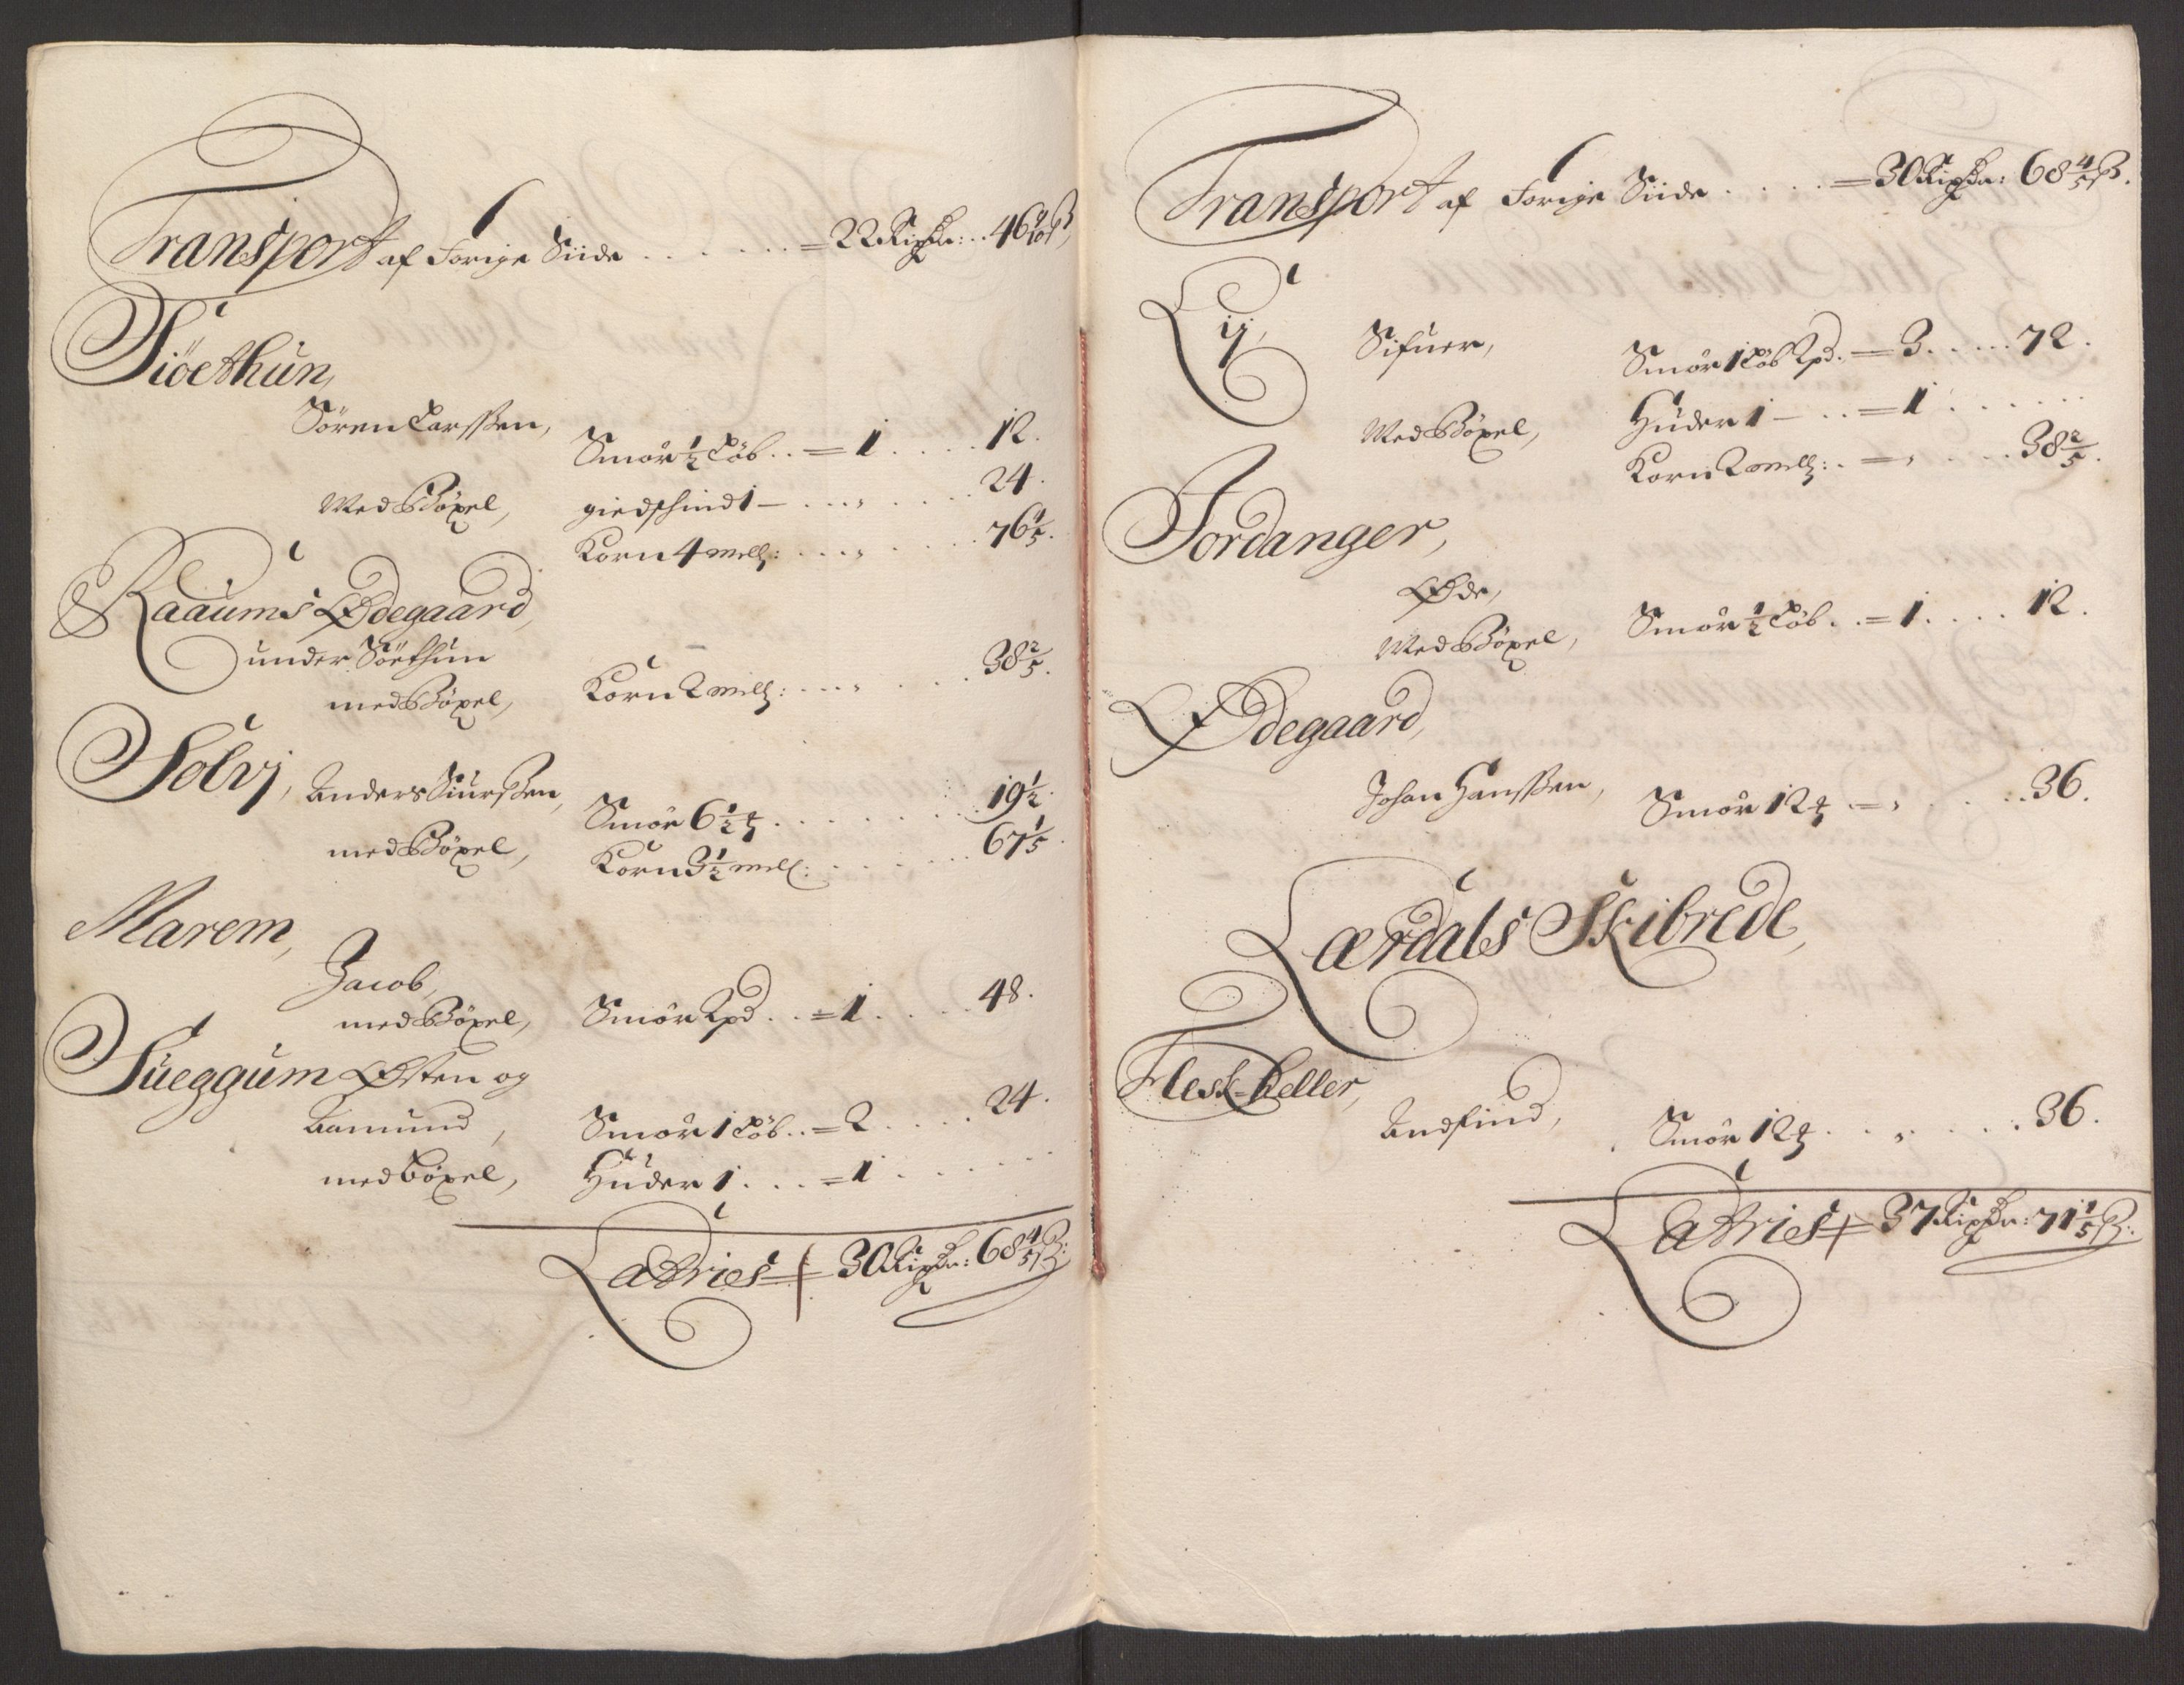 Transport af Forige Siide . . . . . . = 22 Rixdr: . . 46 9/10 ß,
Siöethun,
Sören Larssen, Smör 1/2 Löb . . = 1 . . . . 12.
Med Böxel, giedschind 1 — . . . „ . . . . 24.
Korn 4 mell: . . . „ . . . . 76 4/5.
Raaums Ødegaard,
under Söethun
med Böxel, Korn 2 mell: . . . „ . . . . 38 2/5.
Solvj, Anders Siurssen, Smör 6 1/2 ℔ . . . . . . . 19 1/2.
med Böxel, Korn 3 1/2 mell: . . . . . . 67 1/5.
Marem,
Jacob,
med Böxel, Smör 2 pd . . = 1 . . . . 48.
Sueggum Østen og
Aamund, Smör 1 Löb . . = 2 . . . . 24.
med böxel, Huder 1 . . . = 1 . . . . . .
Latries = 30 Rixdr: 68 4/5 ß:
Transport af Forige Siide . . . . . = 30 Rixdr: 68 4/5 ß.
Lij, Sifuer, Smör 1 Löb 2 pd. = 3 . . . . . 72.
Med Böxel, Huder 1 — . . = 1 . . . . . .
Korn 2 mell: . = „ . . . . 38 2/5.
Jordanger,
Øde,
Med Böxel, Smör 1/2 Löb . . = 1 . . . . 12.
Ødegaard,
Johan Hanssen, Smör 12 ℔ . = „ . . . . . 36.
Lærdals Skibrede,
Flesk-Keller,
Andfind, Smör 12 ℔ . . . „ . . . . 36.
Latries = 37 Rixdr: 71 1/5 ß: